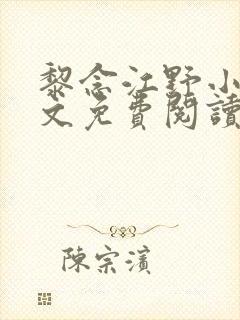 黎念江野小
文免費閱讀
陳宗濱